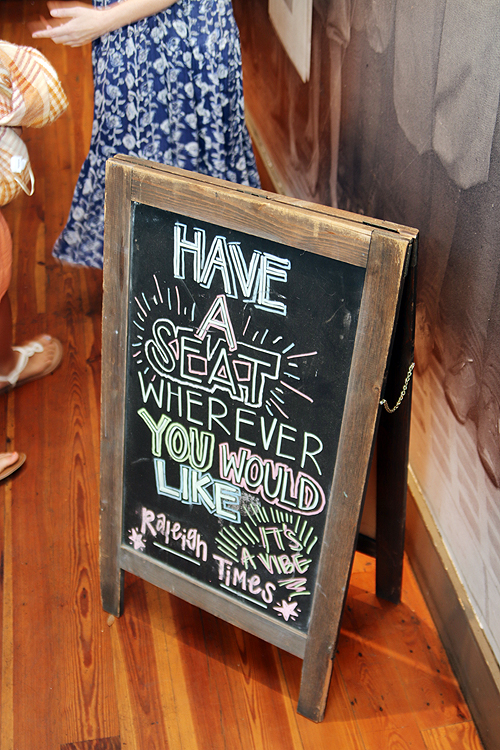 HAVE
A
SEAT
WHEREVER
YOU WOULD
LIKE
IT'S
A VIBE
Raleigh
Times